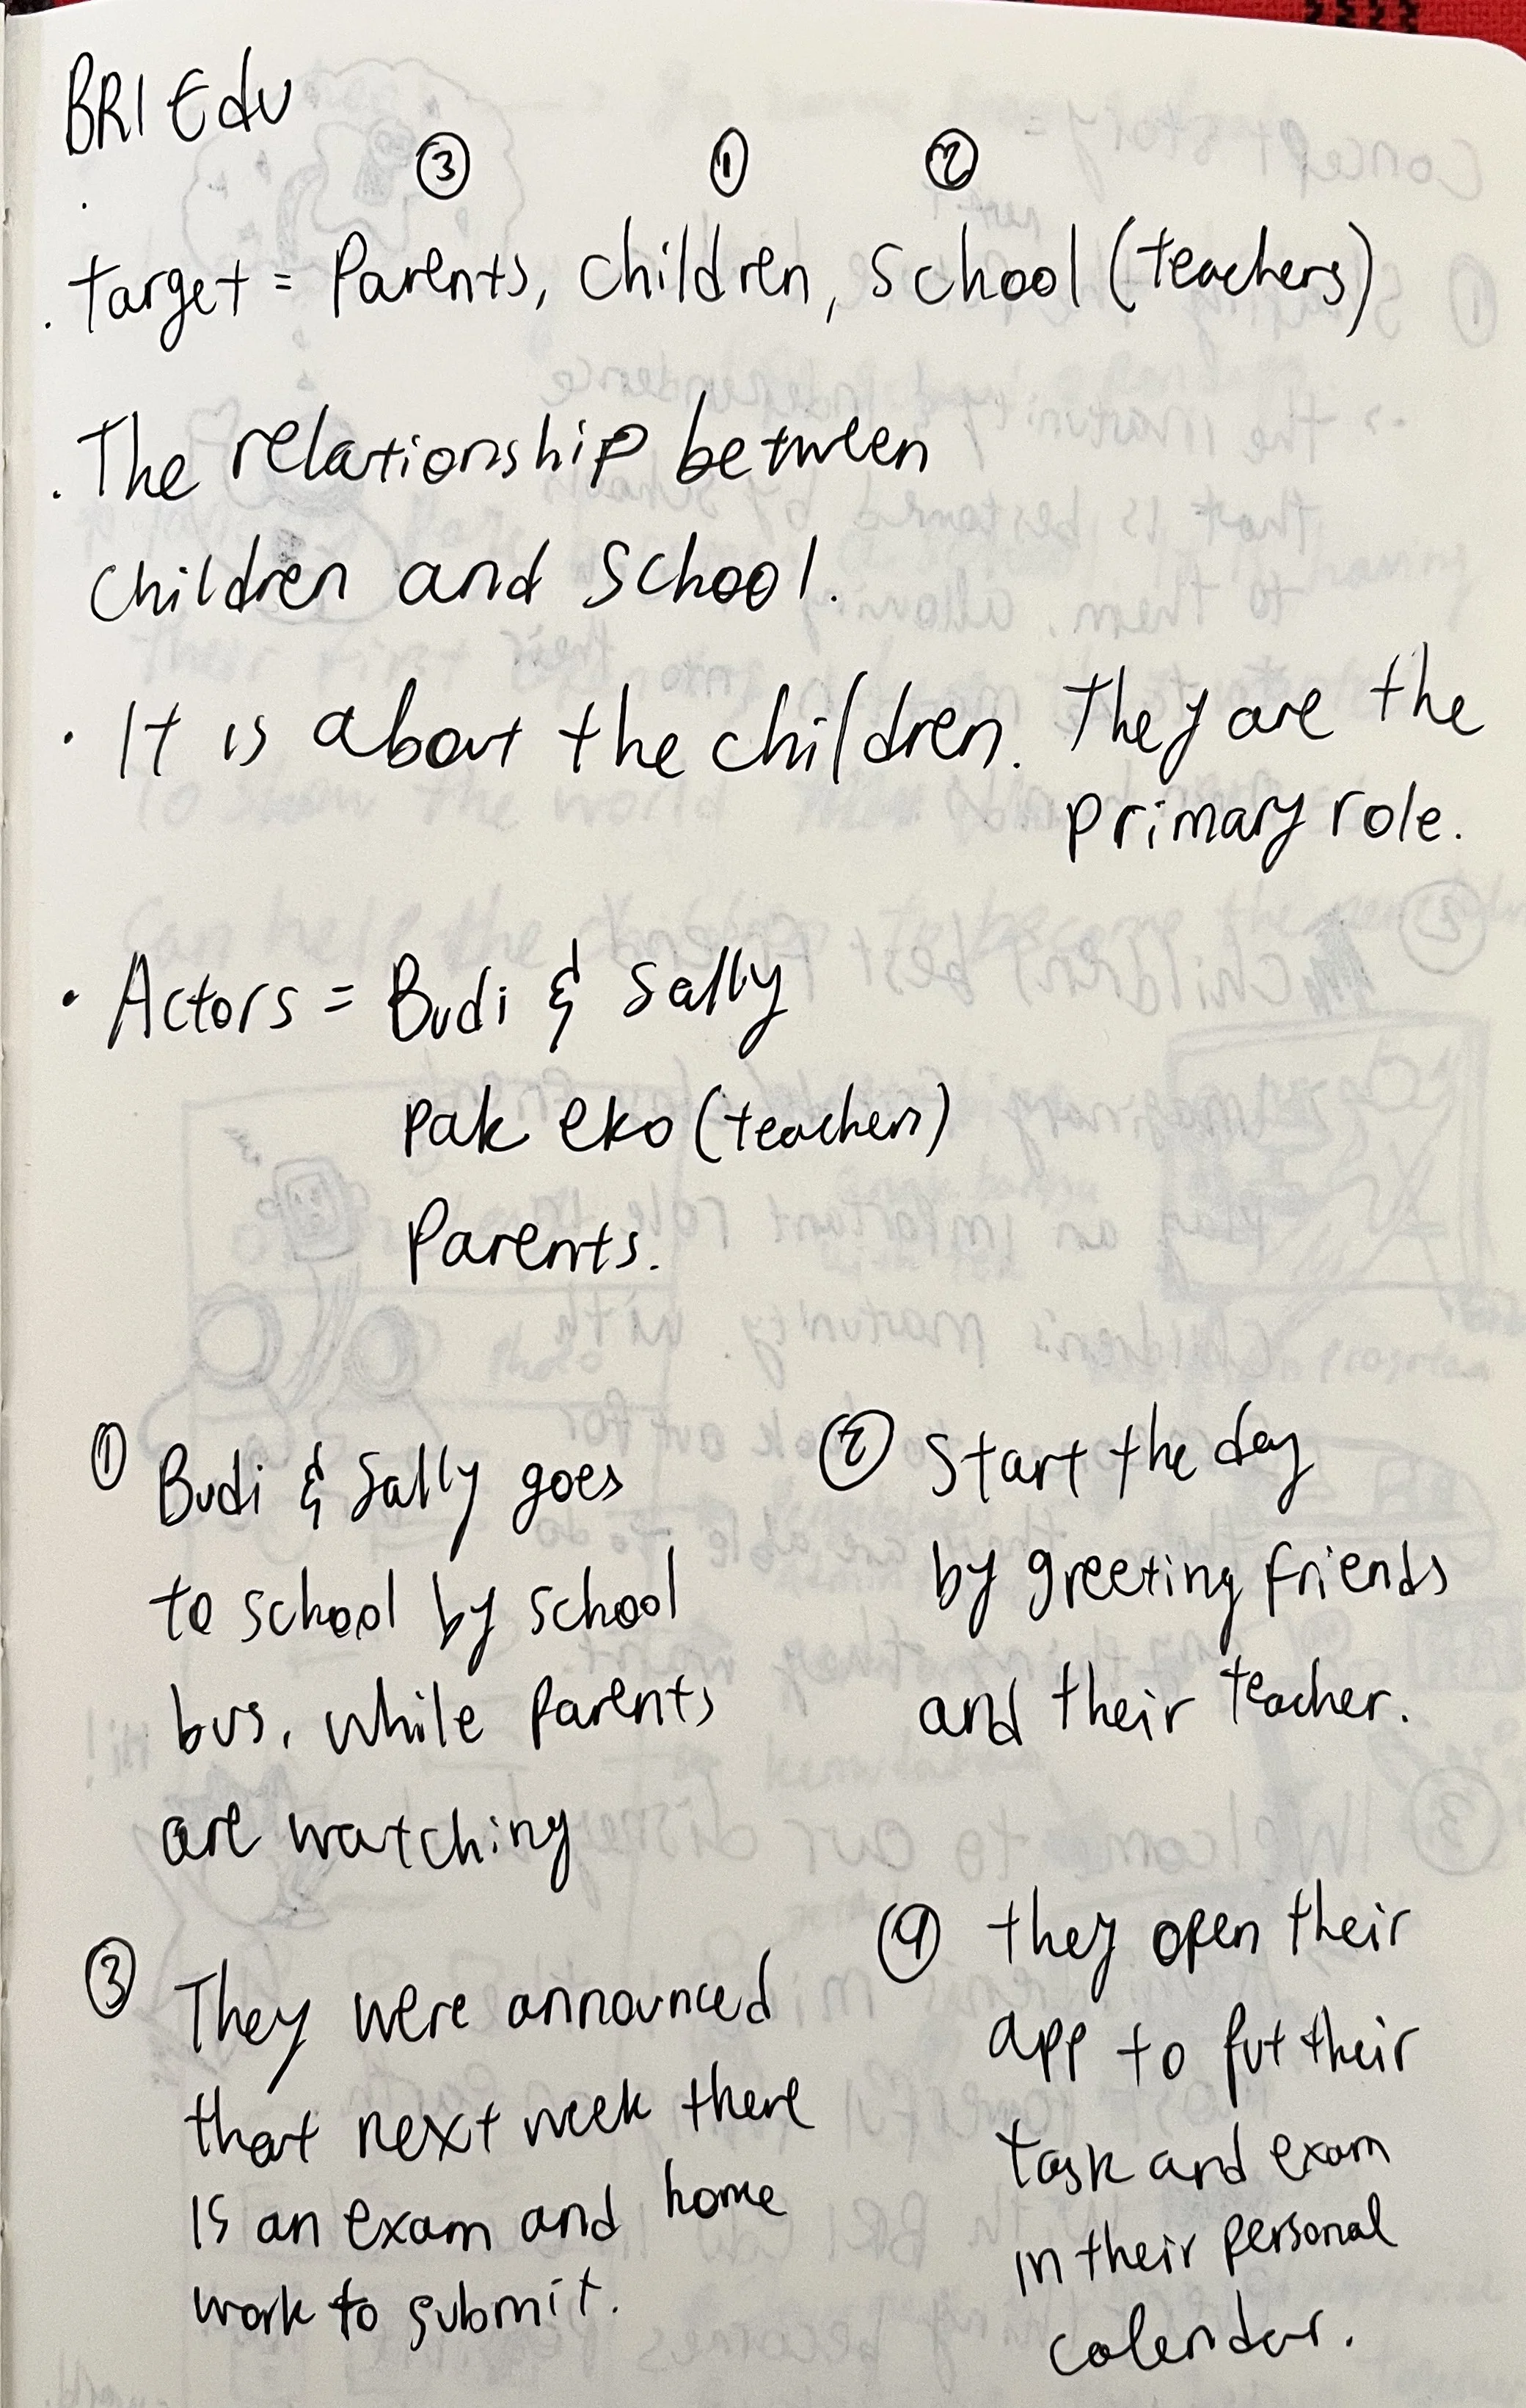 BRI Edu
③ ① ②
. target = Parents, children, school (teachers)
. The relationship between
children and school.
• It is about the children. They are the
primary role.
• Actors = Budi & Sally
pak eko (teachers)
Parents.
① Budi & Sally goes
to school by school
bus, while parents
are watching
② Start the day
by greeting friends
and their teacher.
③ They were announced
that next week there
is an exam and home
work to submit.
④ they open their
app to put their
task and exam
in their personal
calendar.